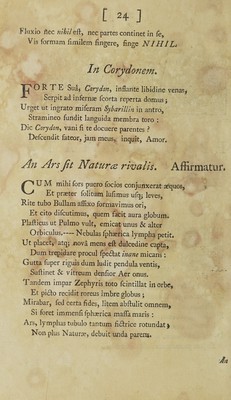 [ 24 ]
Fluxio nec nihil est, nec partes continet in se,
Vis formam similem fingere, finge NIHIL.
In Corydonem.
FORTE Suâ, Corydon, instante libidine venas,
Serpit ad infernæ scorta reperta domus;
Urget ut ingrato miseram Sybarillin in antro,
Stramineo fundit languida membra toro:
Dic Corydon, vani si te docuere parentes?
Descendit fateor, jam meus, inquit, Amor.
An Ars sit Naturæ rivalis. Affirmatur.
CUM mihi fors puero socios conjunxerat æquos,
Et præter solitam lusimus usq; leves,
Rite tubo Bullam affixo formavimus ori,
Et cito discutimus, quem facit aura globum.
Plasticus ut Pulmo vult, emicat unus & alter
Orbiculus.— Nebula sphærica lympha petit.
Ut placet, atq; nova mens est dulcedine capta,
Dum trepidare procul spectat inane micans:
Gutta super riguis dum ludit pendula ventis,
Sustinet & vitreum densior Aër onus.
Tandem impar Zephyris toto scintillat in orbe,
Et picto recidit roreus imbre globus;
Mirabar, sed certa fides, litem abstulit omnem,
Si foret immensi sphærica massa maris:
Ars, lymphas tubulo tantum strictice rotundat,
Non plus Naturæ, debuit unda parens.
An